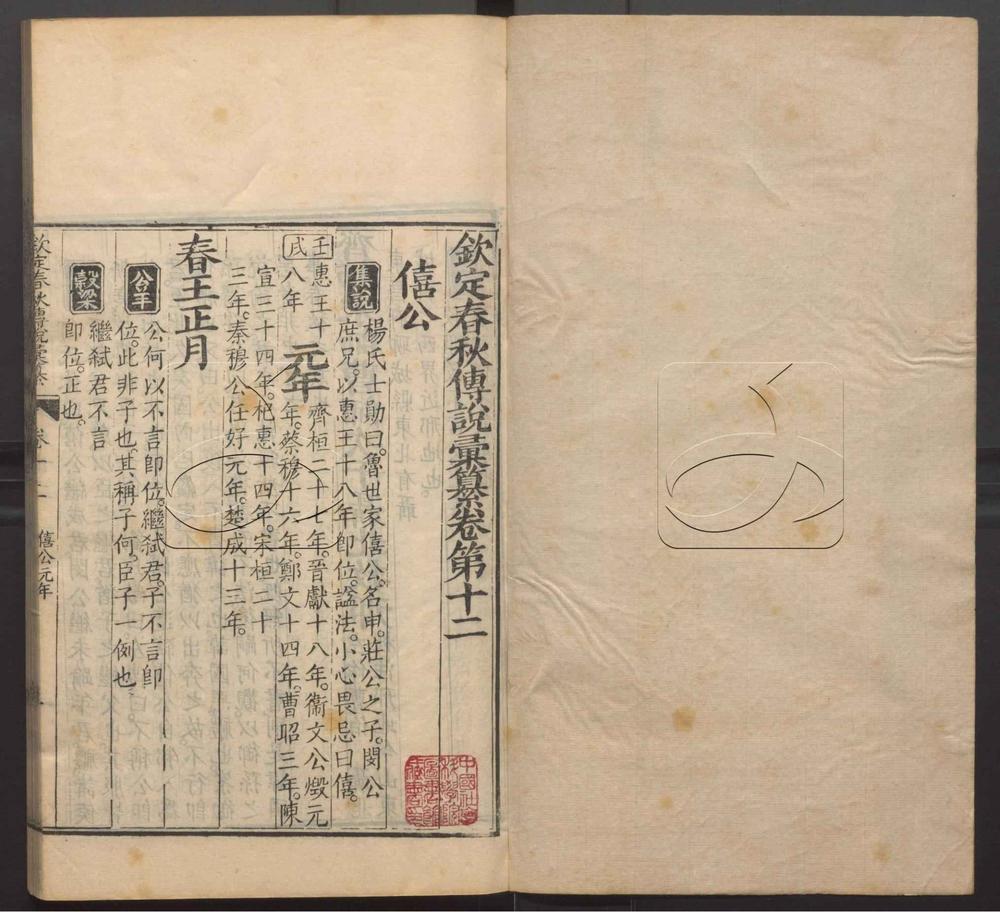 欽定春秋傳說彙纂卷第十二
僖公
集說
楊氏士勛曰。魯世家僖公。名申。莊公之子。閔公
庶兄。以惠王十八年卽位。謚法。小心畏忌曰僖。
壬戌
惠王十八年
元年
齊桓二十七年。晉獻十八年。衞文公燬元
年。蔡穆十六年。鄭文十四年。曹昭三年。陳
宣三十四年。杞惠十四年。宋桓二十
三年。秦穆公任好元年。楚成十三年。
春王正月
公羊
公何以不言卽位。繼弒君。子不言卽
位。此非子也。其稱子何。臣子一例也。
穀梁
繼弒君不言
卽位。正也。
欽定春秋傳說彙纂
卷十二
僖公元年